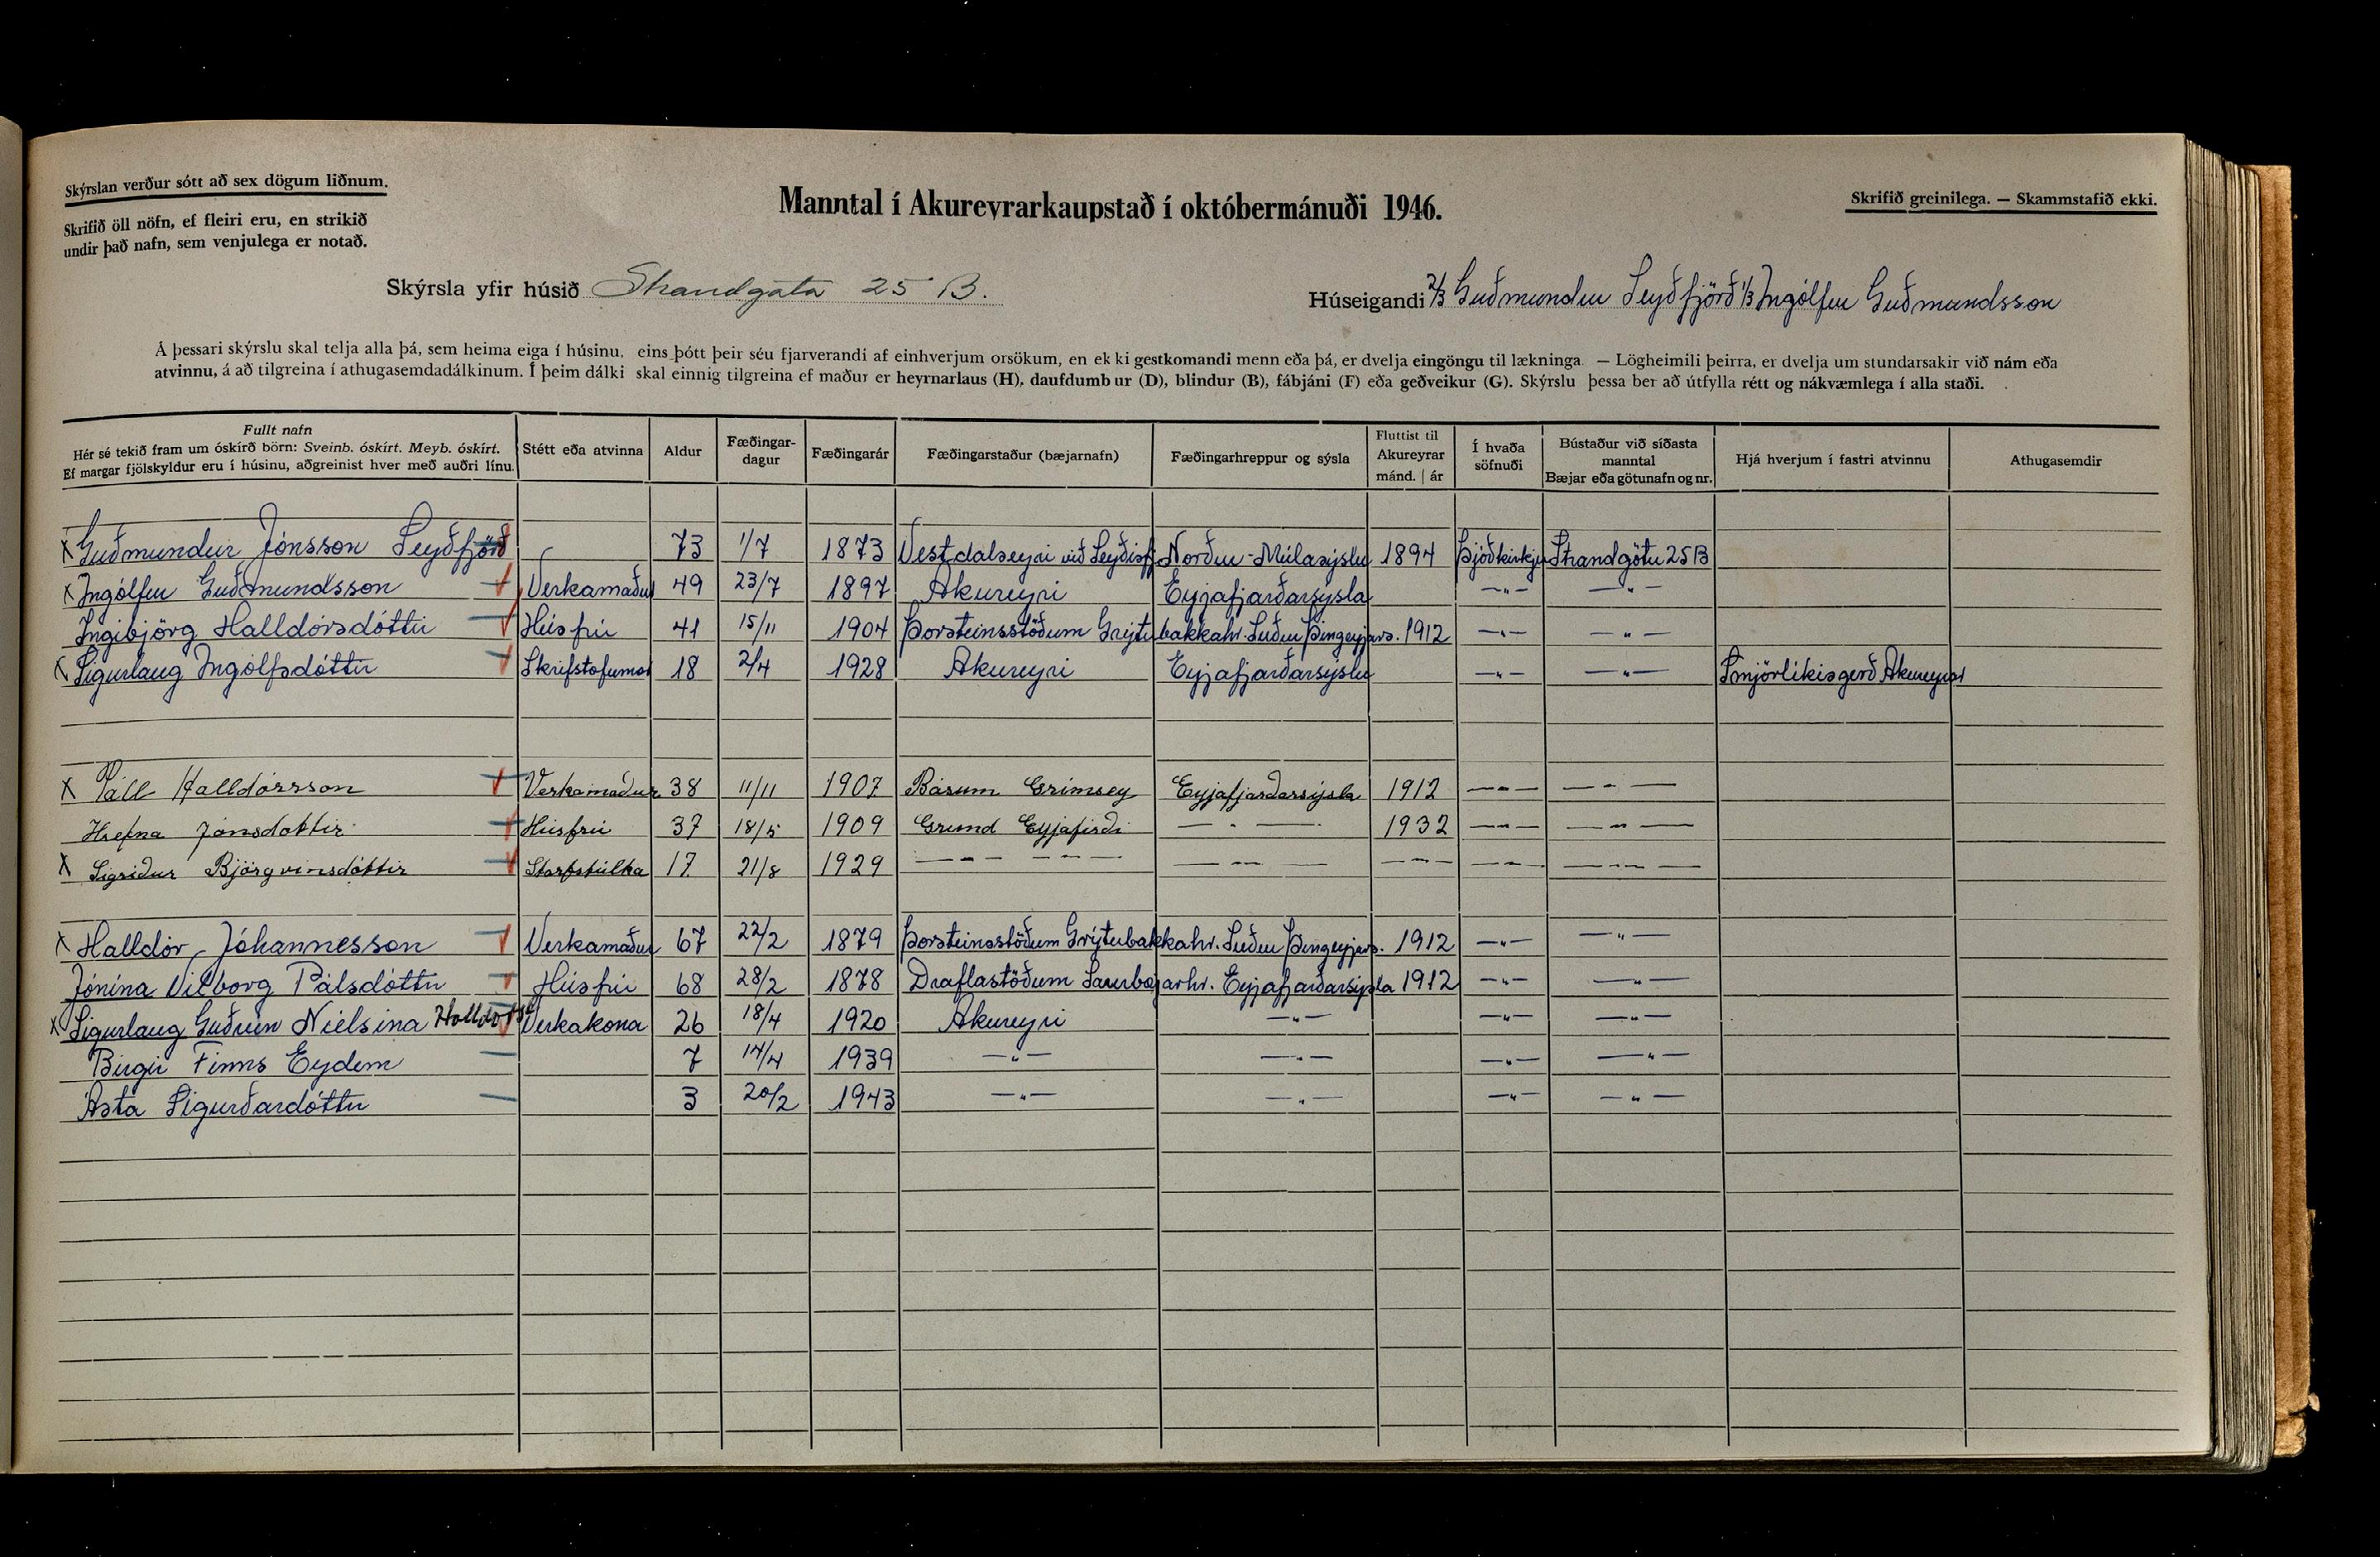 Skýrslan verður sótt að sex dögum liðnum.
Skrifið öll nöfn, ef fleiri eru, en strikið
undir það nafn, sem venjulega er notað.
Manntal í Akureyrarkaupstað í októbermánuði 1946.
Skrifið greinilega. — Skammstafið ekki.
Skýrsla yfir húsið Strandgata 25 B.
Húseigandi 2/3 Guðmundur Seyðfjörð 1/3 Ingólfur Guðmundsson
Á þessari skýrslu skal telja alla þá, sem heima eiga í húsinu, eins þótt þeir séu fjarverandi af einhverjum orsökum, en ekki gestkomandi menn eða þá, er dvelja eingöngu til lækninga. — Lögheimili þeirra, er dvelja um stundarsakir við nám eða
atvinnu, á að tilgreina í athugasemdadálkinum. Í þeim dálki skal einnig tilgreina ef maður er heyrnarlaus (H), daufdumbur (D), blindur (B), fábjáni (F) eða geðveikur (G). Skýrslu þessa ber að útfylla rétt og nákvæmlega í alla staði.
Fullt nafn
Hér sé tekið fram um óskírð börn: Sveinb. óskírt. Meyb. óskírt.
Ef margar fjölskyldur eru í húsinu, aðgreinist hver með auðri línu.
Stétt eða atvinna
Aldur
Fæðingar-
dagur
Fæðingarár
Fæðingarstaður (bæjarnafn)
Fæðingarhreppur og sýsla
Fluttist til
Akureyrar
mánd. | ár
Í hvaða
söfnuði
Bústaður við síðasta
manntal
Bæjar eða götunafn og nr.
Hjá hverjum í fastri atvinnu
Athugasemdir
x Guðmundur Jónsson Seyðfjörð 73 1/7 1873 Vestdalseyri við Seyðisfj Norður-Múlasýslu 1894 Þjóðkirkju Strandgötu 25B
x Ingólfur Guðmundsson Verkamaður 49 23/7 1897 Akureyri Eyjafjarðarsýsla —"— —"—
Ingibjörg Halldórsdóttir Húsfrú 41 15/11 1904 Þorsteinsstöðum Grýtubakkahr. Suður Þingeyjars. 1912 —"— —"—
x Sigurlaug Ingólfsdóttir Skrifstofumær 18 2/4 1928 Akureyri Eyjafjarðarsýslu —"— —"— Smjörlíkisgerð Akureyrar
x Páll Halldórsson Verkamaður 38 11/11 1907 Básum Grímsey Eyjafjarðarsýsla 1912 —"— —"—
Hrefna Jónsdóttir Húsfrú 37 18/5 1909 Grund Eyjafirði —"— 1932 —"— —"—
x Sigríður Björgvinsdóttir Starfstúlka 17 21/8 1929 —"— —"— —"— —"— —"— —"—
x Halldór Jóhannesson Verkamaður 67 22/2 1879 Þorsteinsstöðum Grýtubakkahr. Suður Þingeyjars. 1912 —"— —"—
Jónína Vilborg Pálsdóttir Húsfrú 68 28/2 1878 Draflastöðum Saurbæjarhr. Eyjafjarðarsýsla 1912 —"— —"—
x Sigurlaug Guðrún Níelsína Halldórsd Verkakona 26 18/4 1920 Akureyri —"— —"— —"—
Birgir Finns Eydem 7 14/4 1939 —"— —"— —"— —"—
Ásta Sigurðardóttir 3 20/2 1943 —"— —"— —"— —"—